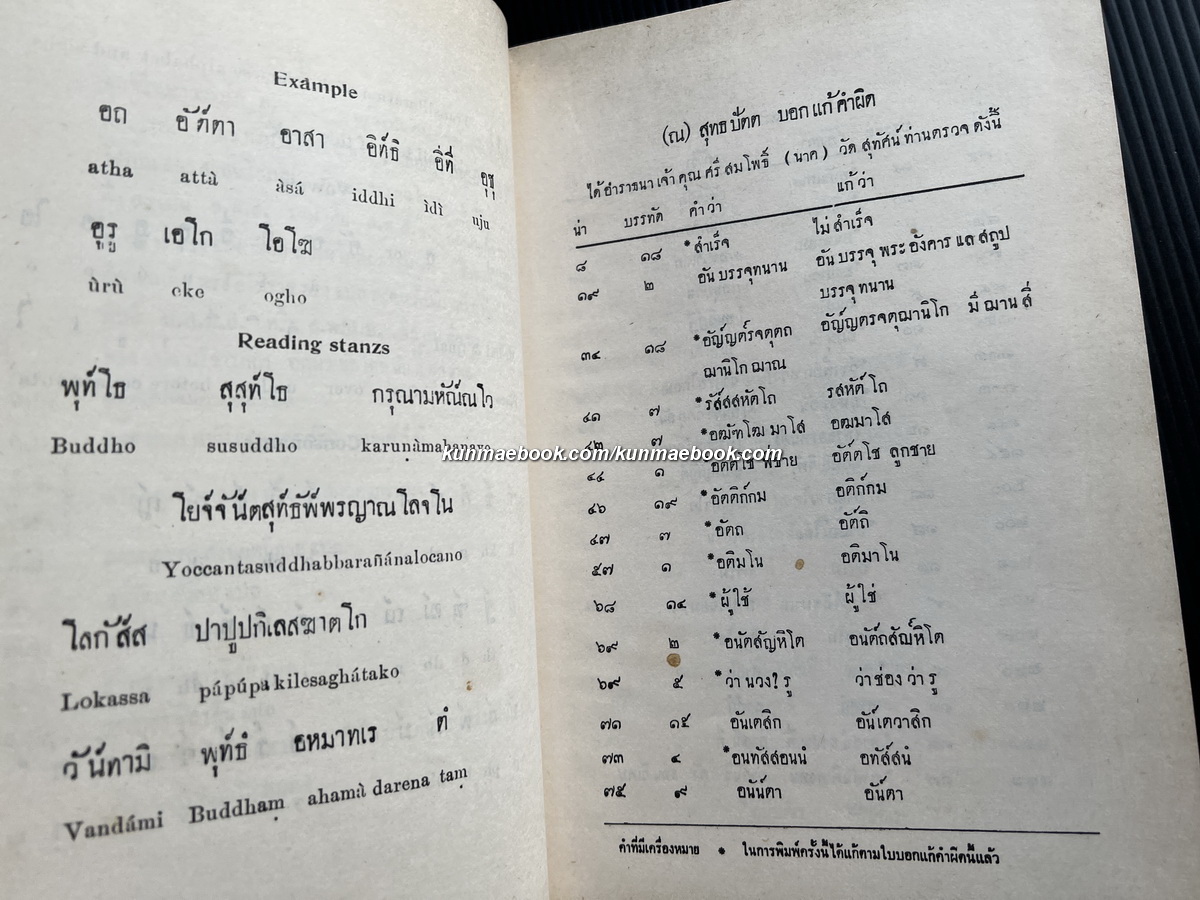 Example
อถ อัต์ตา อาสา อิท์ธิ อิที อุชุ
atha attà àsá iddhi ìdì uju
อุรู เอโก โอโฆ
ùrù eke ogho
Reading stanzs
พุท์โธ สุสุท์โธ กรุณามหัณ์ณโว
Buddho susuddho karuṇàmahaṇavo
โยจ์จัน์ตสุท์ธัพ์พรญาณโลจโน
Yoccantasuddhabbarañánalocano
โลกัส์ส ปาปูปกิเลสฆาตโก
Lokassa pápúpa kilesaghátako
วัน์ทามิ พุท์ธํ อหมาทเร ตํ
Vandámi Buddhaṃ ahamà darena taṃ
(ณ) สุทธปัตต บอกแก้คำผิด
ได้อำราธนาเจ้าคุณศรีสมโพธิ์ (นาค) วัดสุทัศน์ท่านตรวจดังนี้
น่า บรรทัด คำว่า แก้ว่า
๘ ๑๘ *สำเร็จ ไม่สำเร็จ
๑๙ ๒ อันบรรจุทนาน อันบรรจุพระอังคารแลสถูป
บรรจุทนาน
๓๔ ๑๘ *อัญ์ญต์รจตุตถ อัญ์ญตรจตุฌานิโก มีฌานสี่
ฌานิโก ฌาณ
๔๑ ๗ *รัส์สสหัตโถ รสหัต์โถ
๔๓ ๗ *อฒัฑโฒมาโส อฒมาโส
๔๔ ๑ อัตตโชพี่ชาย อัต์ตโชลูกชาย
๔๖ ๑๙ *อัตติก์กม อติก์กม
๔๗ ๗ *อัตถ อัต์ถิ
๕๗ ๑ *อติมโน อติมาโน
๖๘ ๑๔ *ผู้ใช้ ผู้ใช่
๖๙ ๒ *อนัตสัญหิโต อนัต์ถสัญ์หิโต
๖๙ ๕ *ว่านวง?รู ว่าช่องว่ารู
๗๑ ๑๕ อันเตสิก อัน์เตวาสิก
๗๓ ๔ *อนทัสสอนนํ อทัส์สนํ
๗๕ ๙ อนัน์ตา อัน์ตา
คำที่มีเครื่องหมาย * ในการพิมพ์ครั้งนี้ได้แก้ตามใบบอกแก้คำผิดนี้แล้ว
kunmaebook.com/kunmaebook.com